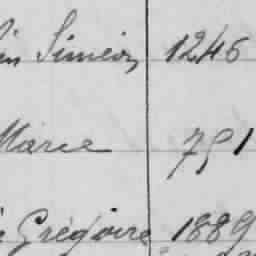 in Siméon 1246
Marie 751
Grégoire 1889